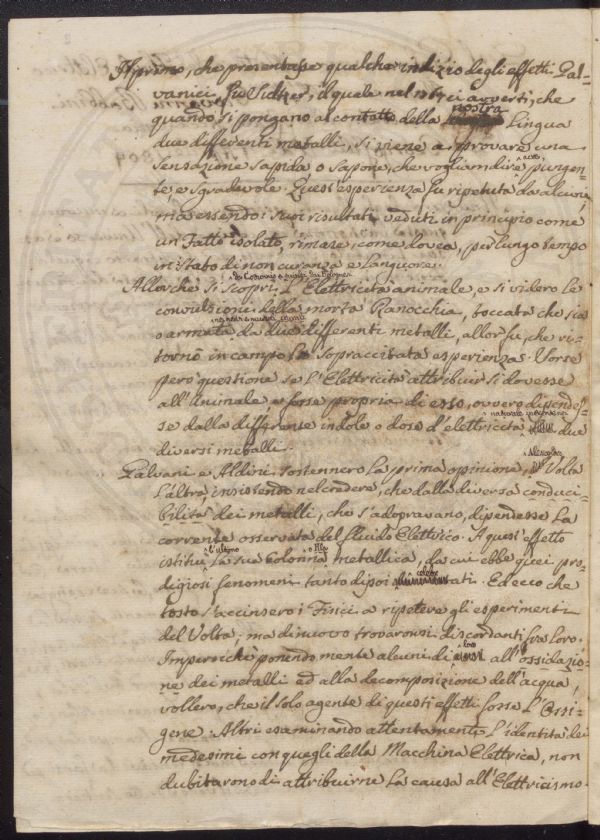 Il primo, che presentasse qualche indizio degli effetti Gal-
vanici, fu Sultzer, il quale nel ci avvertì, che
quando si pongano a contatto della nostra Lingua
due differenti metalli, si viene a provare una
sensazione sapida o sapore, che vogliam dire, pungen-
te, e sgradevole. Quest'esperienza fu ripetuta da alcuni,
ma essendo i suoi risultati veduti in principio come
un Fatto isolato, rimase, come dovea, per lungo tempo
in istato di non curanza e languore.
Allorchè si scoprì l'Elettricità animale, e si videro le
convulsioni della morta Ranocchia, toccata che sia
o armata da due differenti metalli, allor fu, che ri-
tornò in campo la sopraccitata esperienza. Sorse
però questione se l'Elettricità attribuir si dovesse
all'Animale e fosse propria di esso, ovvero dipendes-
se dalla differente indole o dose d'elettricità due
diversi metalli.
Galvani e Aldini sostennero la prima opinione, Volta
l'altra, insistendo nel credere, che dalla diversa conduci-
bilità dei metalli, che s'adopravano, dipendesse la
corrente osservata del fluido Elettrico. A quest'effetto
istituì l'ultimo la sua Colonna o Pila metallica, da cui ebbe quei pro-
digiosi fenomeni tanto dipoi tati. Ed ecco che
tosto s'accinsero i Fisici a ripetere gli esperimenti
del Volta; ma di nuovo trovaronsi discordanti fra loro.
Imperocchè ponendo mente alcuni di loro all'ossidazio-
ne dei metalli ed alla decomposizione dell'acqua,
vollero, che il solo agente di questi effetti fosse l'Ossi-
gene. Altri esaminando attentamente l'identità dei
medesimi con quegli della Macchina Elettrica, non
dubitarono di attribuirne la causa all'Elettricismo.